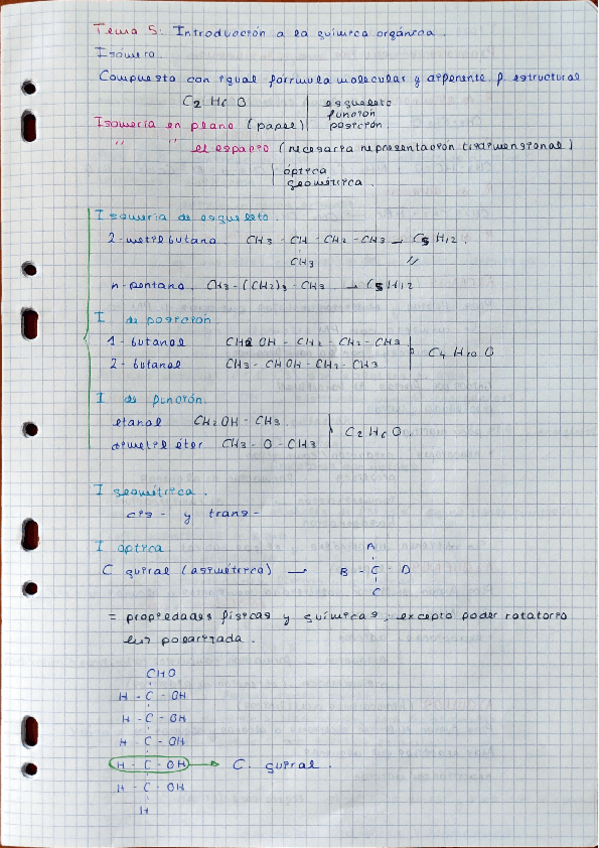 Tema 5: Introducción a la química orgánica.
Isómero.
Compuesto con igual fórmula molecular y diferente f. estructural
C2 H6 O | esqueleto
función
Isomería en plano (papel) | posición.
" " el espacio (necesaria representación tridimensional)
| óptica
geométrica.
Isomería de esqueleto.
2-metilbutano. CH3 - CH - CH2 - CH3 → C5 H12.
CH3 //
n-pentano. CH3 - (CH2)3 - CH3 → C5H12
I de posición
1- butanol CH2 OH - CH2 - CH2 - CH3
C4 H10 O
2- butanol CH3 - CHOH - CH2 - CH3
I de función.
etanol CH2OH - CH3.
C2 H6 O.
dimetil éter CH3 - O - CH3
I geométrica.
cis- y trans-
I óptica.
A
C quiral (asimétrico) → B - C - D
C
= propiedades físicas y químicas, excepto poder rotatorio
luz polarizada.
CHO
H - C - OH
H - C - OH
H - C - OH
H - C - OH → C. quiral.
H - C - OH
H